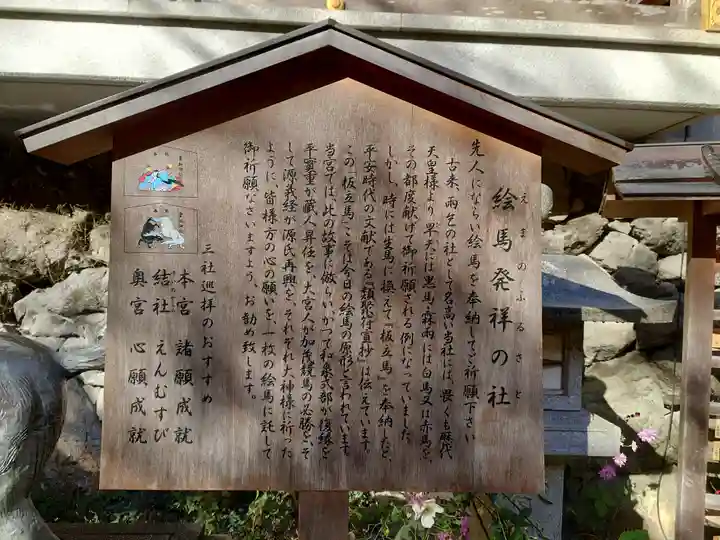 絵馬発祥の社
えまのふるさと
先人にならい絵馬を奉納してご祈願下さい
古来、雨乞の社として名高い当社には、畏くも歴代
天皇様より、旱天には黒馬・霖雨には白馬又は赤馬を、
その都度献げて御祈願される例になっていました。
しかし、時には生馬に換えて『板立馬』を奉納したと、
平安時代の文献である『類聚符宣抄』は伝えています。
この『板立馬』こそは今日の絵馬の原形と言われています。
当宮では、此の故事に倣い、かつて和泉式部が復縁を
平実重が蔵人昇任を、大宮人が加茂競馬の必勝を、そ
して源義経が源氏再興を、それぞれ大神様に祈った
ように、皆様方の心の願いを、一枚の絵馬に託して
御祈願なさいますよう、お勧め致します。
三社巡拝のおすすめ
本宮 諸願成就
結社 えんむすび
奥宮 心願成就